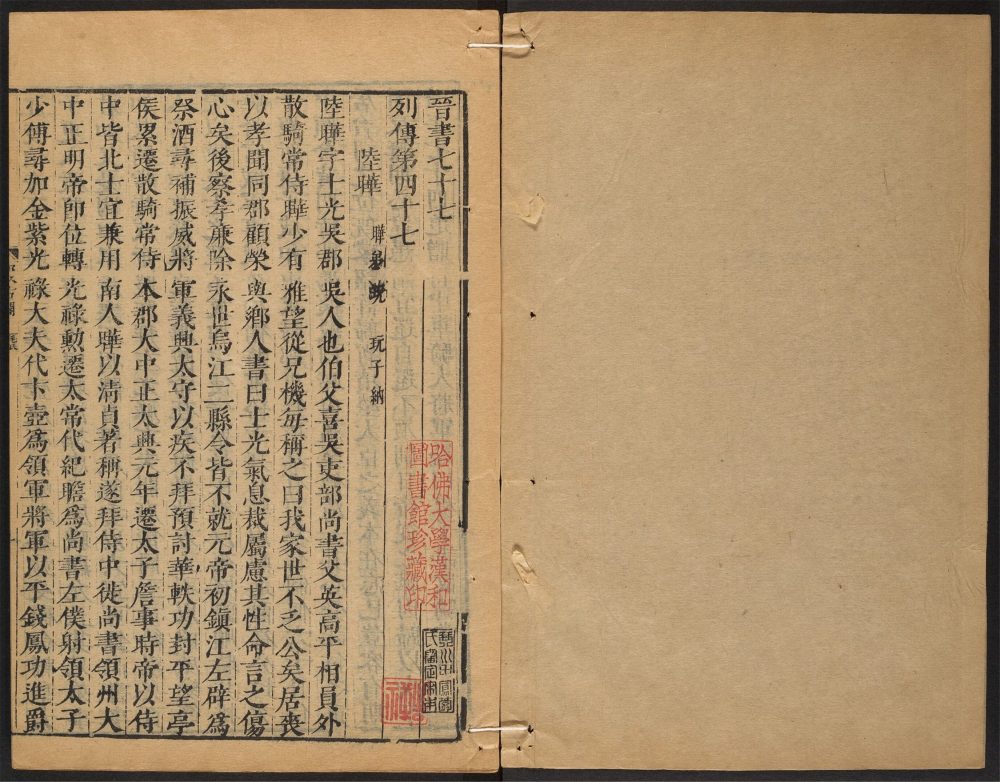 晉書七十七
列傳第四十七
陸曄 曄弟玩 玩子納
陸曄字士光吳郡吳人也伯父喜吳吏部尚書父英高平相員外
散騎常侍曄少有雅望從兄機每稱之曰我家世不乏公矣居喪
以孝聞同郡顧榮與鄉人書曰士光氣息裁屬慮其性命言之傷
心矣後察孝廉除永世烏江二縣令皆不就元帝初鎮江左辟爲
祭酒尋補振威將軍義興太守以疾不拜預討華軼功封平望亭
侯累遷散騎常侍本郡大中正太興元年遷太子詹事時帝以侍
中皆北士宜兼用南人曄以清貞著稱遂拜侍中徙尚書領州大
中正明帝即位轉光祿勳遷太常代紀瞻爲尚書左僕射領太子
少傅尋加金紫光祿大夫代卞壼爲領軍將軍以平錢鳳功進爵
哈佛大學漢和
圖書館珍藏印